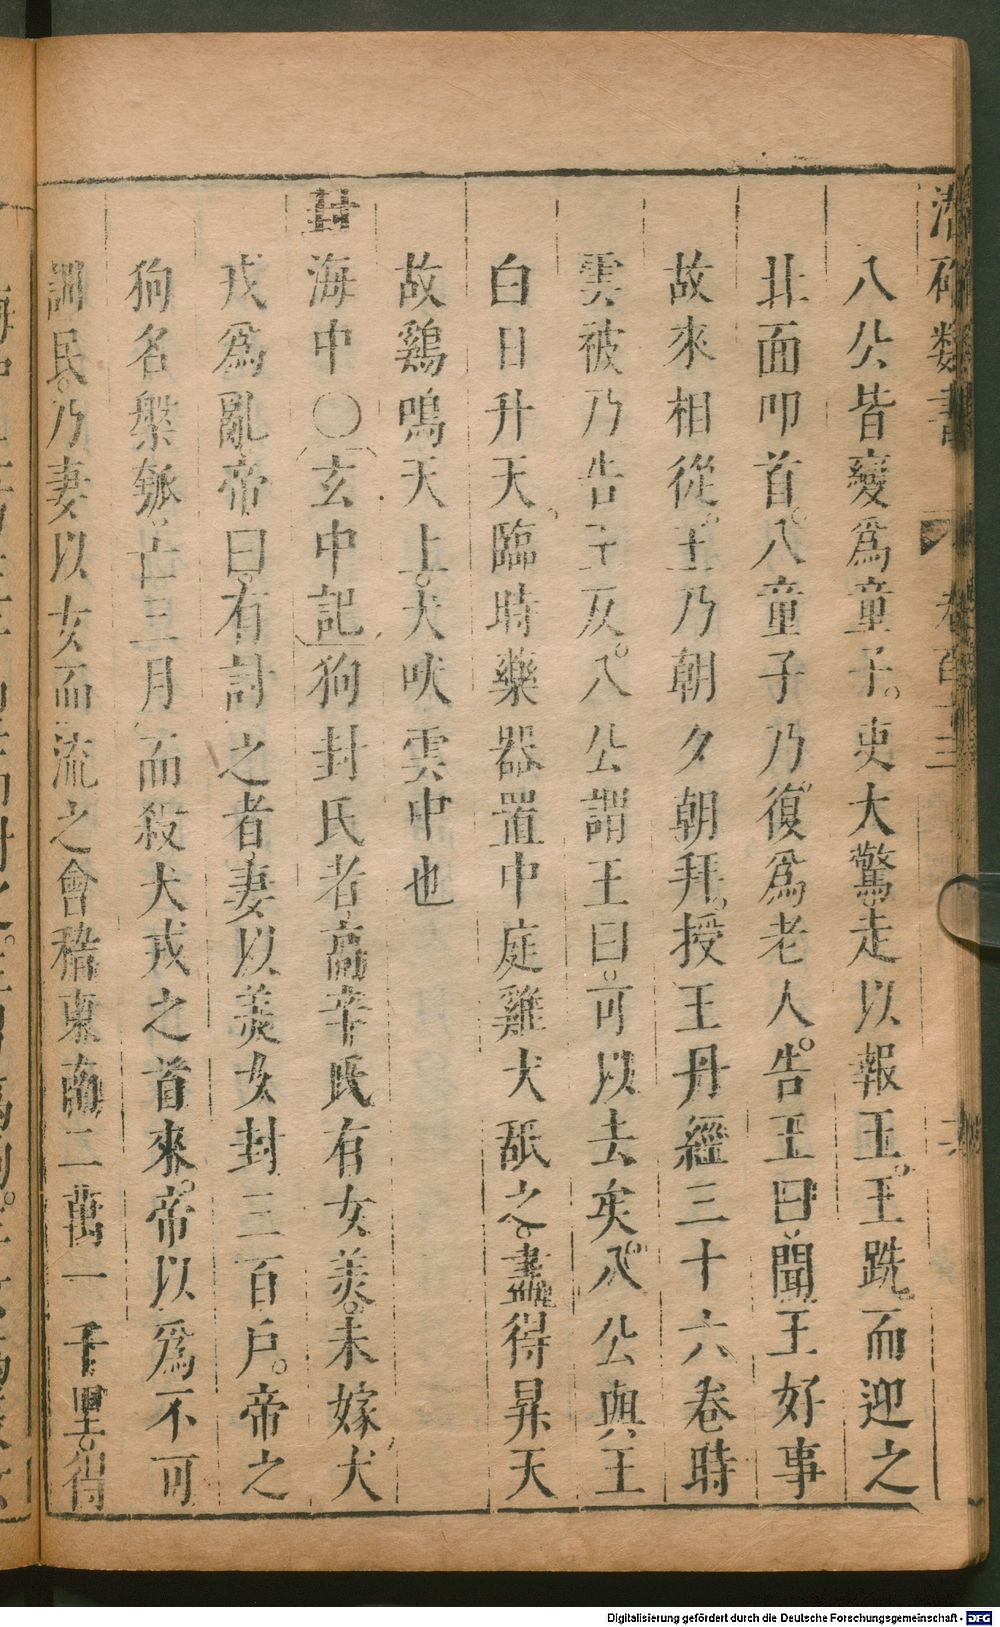 潛確類書 卷百十三
八公皆變爲童子。吏大驚走以報王。王跣而迎之
北面叩首。八童子乃復爲老人。告王曰聞王好事
故來相從。王乃朝夕朝拜。授王丹經三十六卷時
雲被乃告王反。八公謂王曰。可以去矣。八公與王
白日升天。臨時藥器置中庭雞犬舐之。盡得昇天
故鷄鳴天上。犬吠雲中也
封海中〇玄中記狗封氏者高辛氏有女美。未嫁犬
戎爲亂帝曰。有討之者妻以美女封三百戶。帝之
狗名槃瓠亡三月而殺犬戎之首來。帝以爲不可
訓民。乃妻以女而流之會稽東南二萬一千里。得
Digitalisierung gefördert durch die Deutsche Forschungsgemeinschaft - DFG